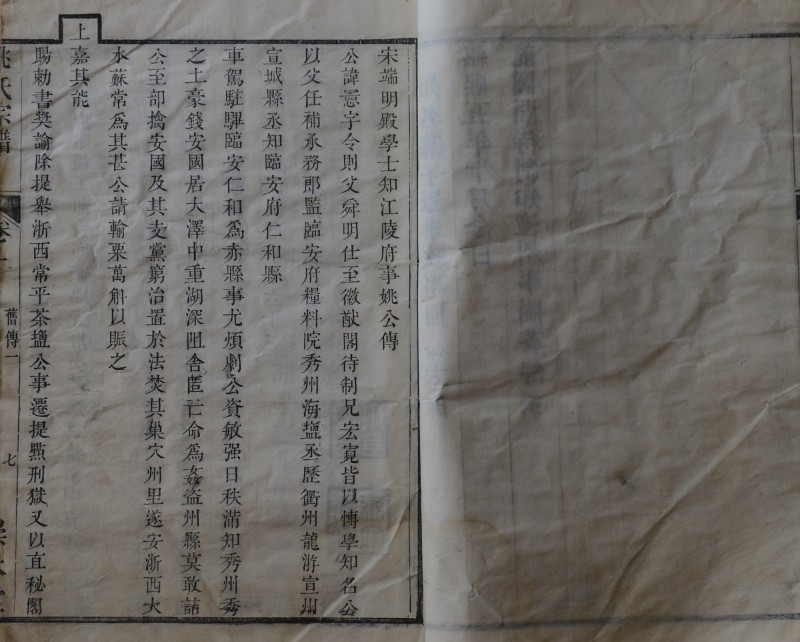 宋端明殿學士知江陵府事姚公傳
公諱憲字令則父舜明仕至徽猷閣待制兄宏寬皆以博學知名公
以父任補承務郎監臨安府糧料院秀州海鹽丞歷衢州龍游宣州
宣城縣丞知臨安府仁和縣
車駕駐驆臨安仁和為赤縣事尤煩劇公資敏强日秩滿知秀州秀
之土豪錢安國居大澤中重湖深阻舍匿亡命為姦盜州縣莫敢詰
公至部擒安國及其支黨窮治置於法焚其巢穴州里遂安浙西大
水蘇常為其甚公請輸粟萬斛以賑之
上嘉其能
賜勅書奨諭除提舉浙西常平茶鹽公事遷提㸃刑獄又以直秘閣
姚氏宗譜
舊傳一
七